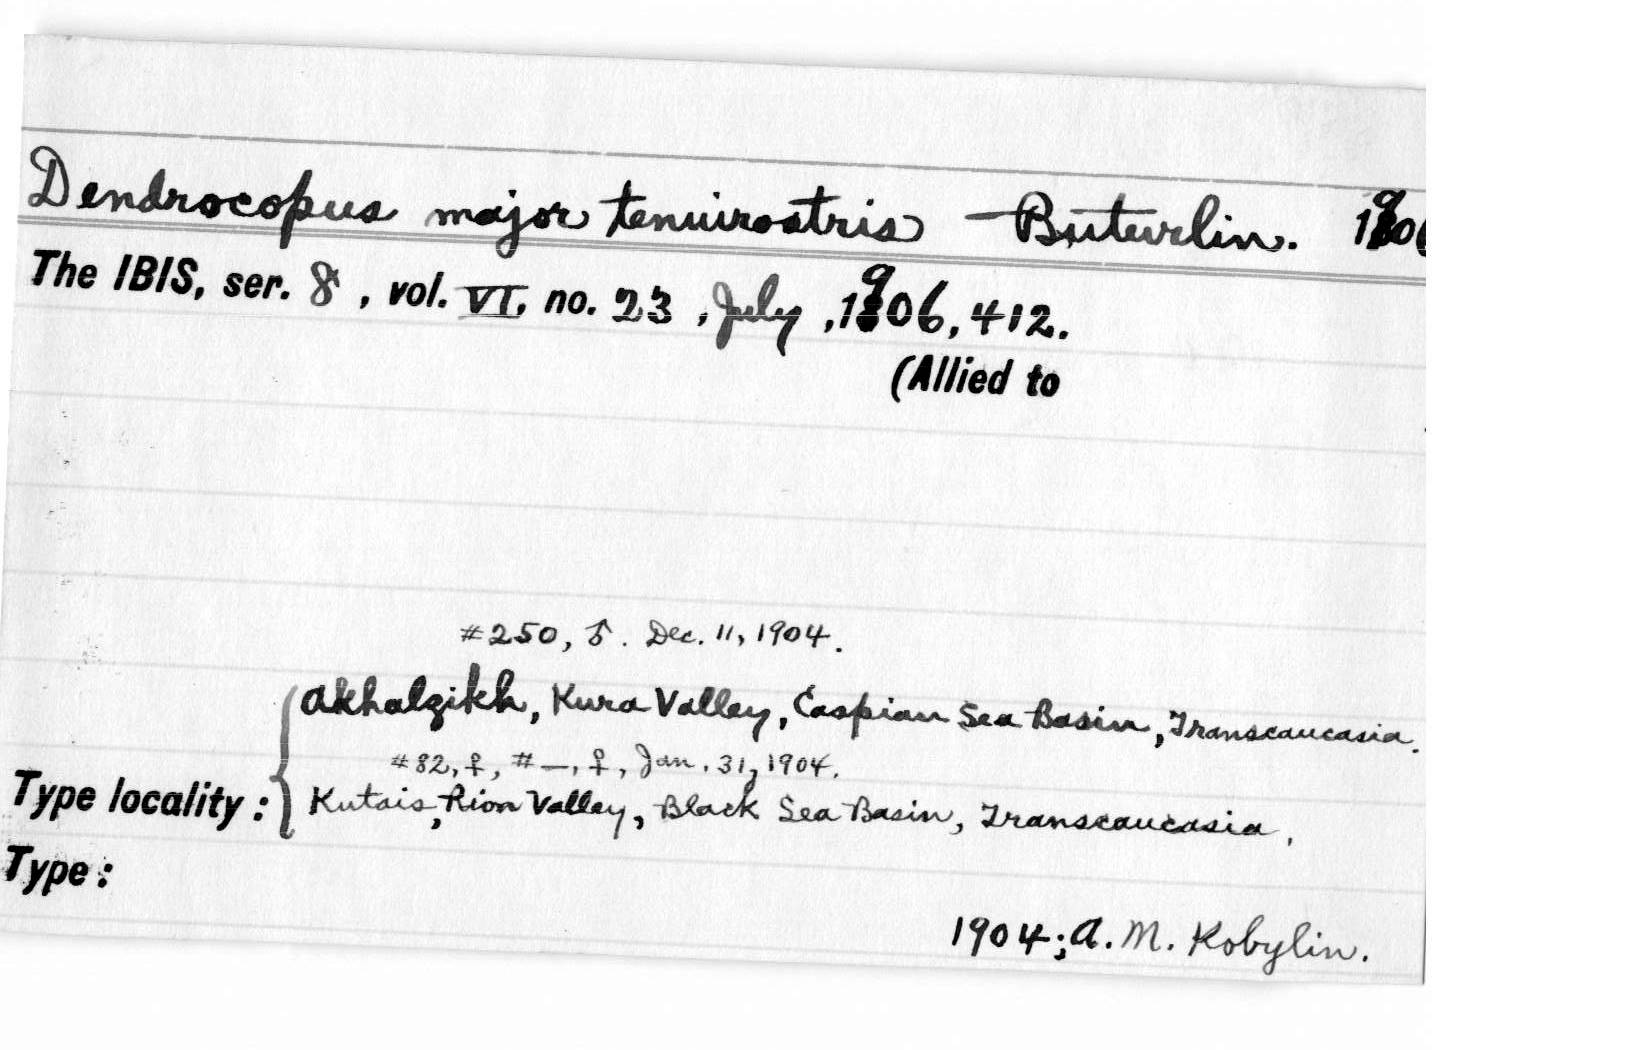 Dendrocopus major tenuirostris Buturlin. 1906
The IBIS, ser. 8, vol. VI, no. 23, July, 1906, 412.
(Allied to
#250, ♂. Dec. 11, 1904.
Akhalzikh, Kura Valley, Caspian Sea Basin, Transcaucasia.
#82, ♀, #—, ♀, Jan. 31, 1904.
Type locality: Kutais, Rion Valley, Black Sea Basin, Transcaucasia.
Type:
1904; A. M. Kobylin.